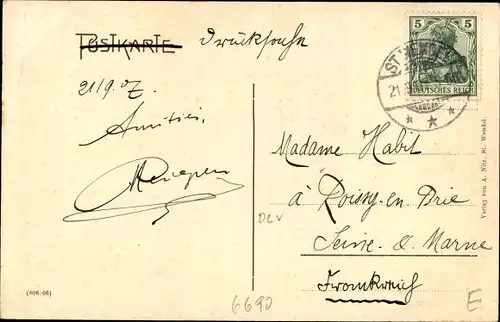 POSTKARTE Drucksache
5
DEUTSCHES REICH
ST. WENDEL
21/9 07.
Amitiés,
Madame Habit
à Roissy-en-Brie
Seine-&-Marne
Frankreich
Verlag von A. Nitz, St. Wendel.
(806:06)
6690
E